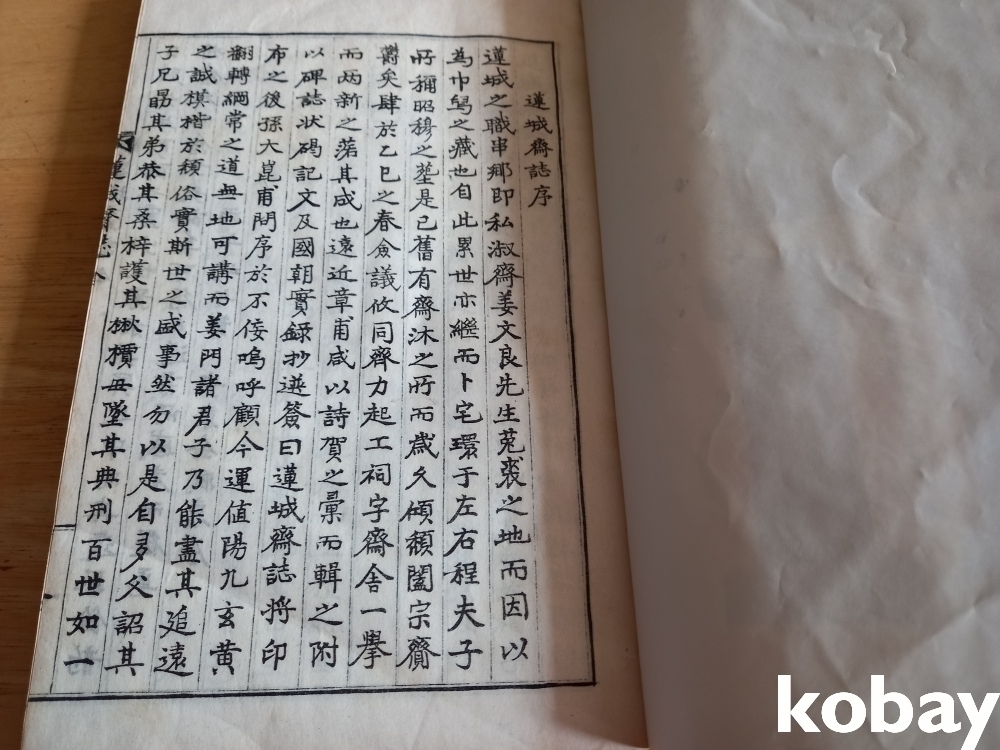 蓮城齋誌序
蓮城之職串鄕即私淑齋姜文良先生菟裘之地而因以
為巾舃之藏也自此累世亦繼而卜宅環于左右程夫子
所稱昭穆之塋是已舊有齋沐之所而歲久傾頹闔宗齎
欝矣肆於乙巳之春僉議攸同齊力起工祠宇齋舎一擧
而两新之落其成也遠近章甫咸以詩賀之彙而輯之附
以碑誌狀碣記文及國朝實錄抄選簽曰蓮城齋誌将印
布之後孫大崑甫問序於不佞嗚呼顧今運值陽九玄黄
翻轉綱常之道無地可講而姜門諸君子乃能盡其追遠
之誠模楷於頹俗實斯世之盛事然勿以是自多父詔其
子兄勗其弟恭其桑梓護其楸檟毋墜其典刑百世如一
蓮城齋誌 全
kobay